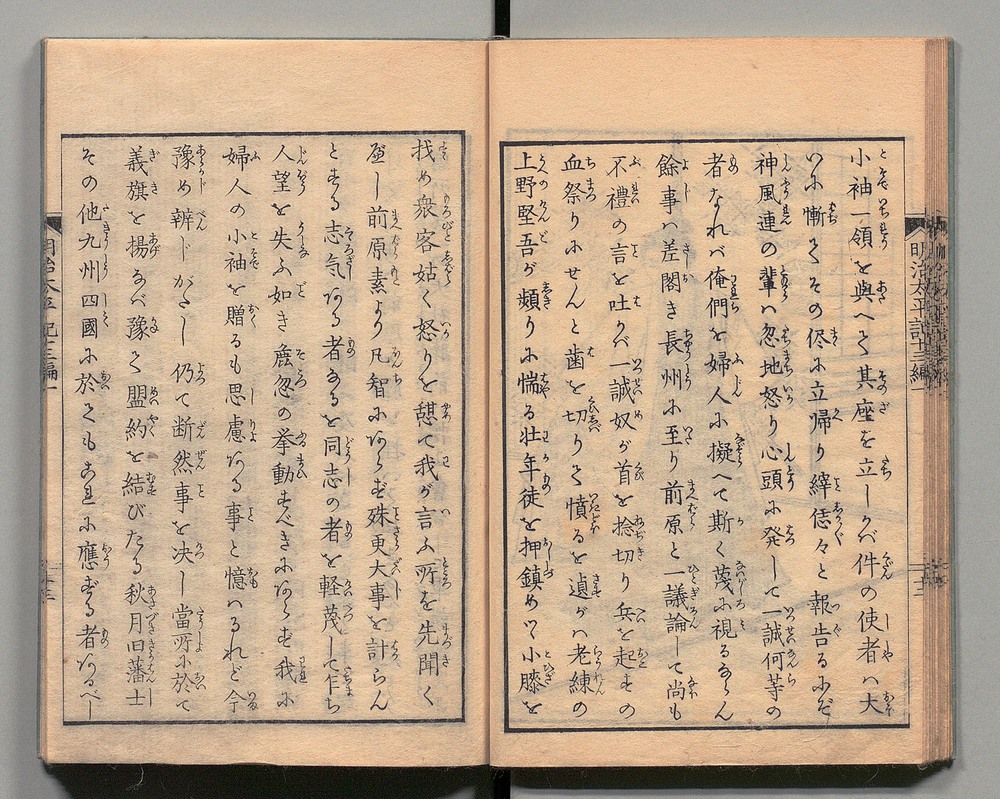 小袖一領を與へて其座を立しかバ件の使者ハ大
いに慚てその侭に立帰り繹恁々と報告るにぞ
神風連の輩ハ忽地怒り心頭に発して一誠何等の
者なれバ俺們を婦人に擬へて斯く蔑に視るならん
餘事ハ差閣き長州に至り前原と一議論して尚も
不禮の言を吐かバ一誠奴が首を捻切り兵を起すの
血祭りにせんと歯を切りて憤るを遉がハ老練の
上野堅吾が頻りに惴る壮年徒を押鎮めつゝ小膝を
找め衆客姑く怒りを憇て我が言ふ所を先聞く
べし前原素より凡智にあらず殊更大事を計らん
とする志気ある者なるを同志の者を軽蔑して乍ち
人望を失ふ如き麁忽の挙動すべきにあらず我に
婦人の小袖を贈るも思慮ある事と憶ハるれど今
豫め辨じがたし仍て断然事を决し當所に於て
義旗を揚なバ豫て盟約を結びたる秋月旧藩士
その他九州四國に於ても之に應ずる者あるべし
明治太平記十三編一